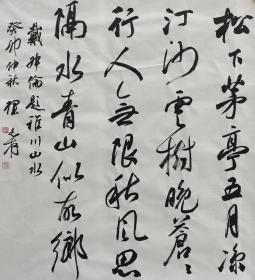 松下茅亭五月凉
汀沙雲樹晚蒼々
行人無限秋風思
隔水青山似故鄉
戴叔倫題稚川山水
癸卯仲秋